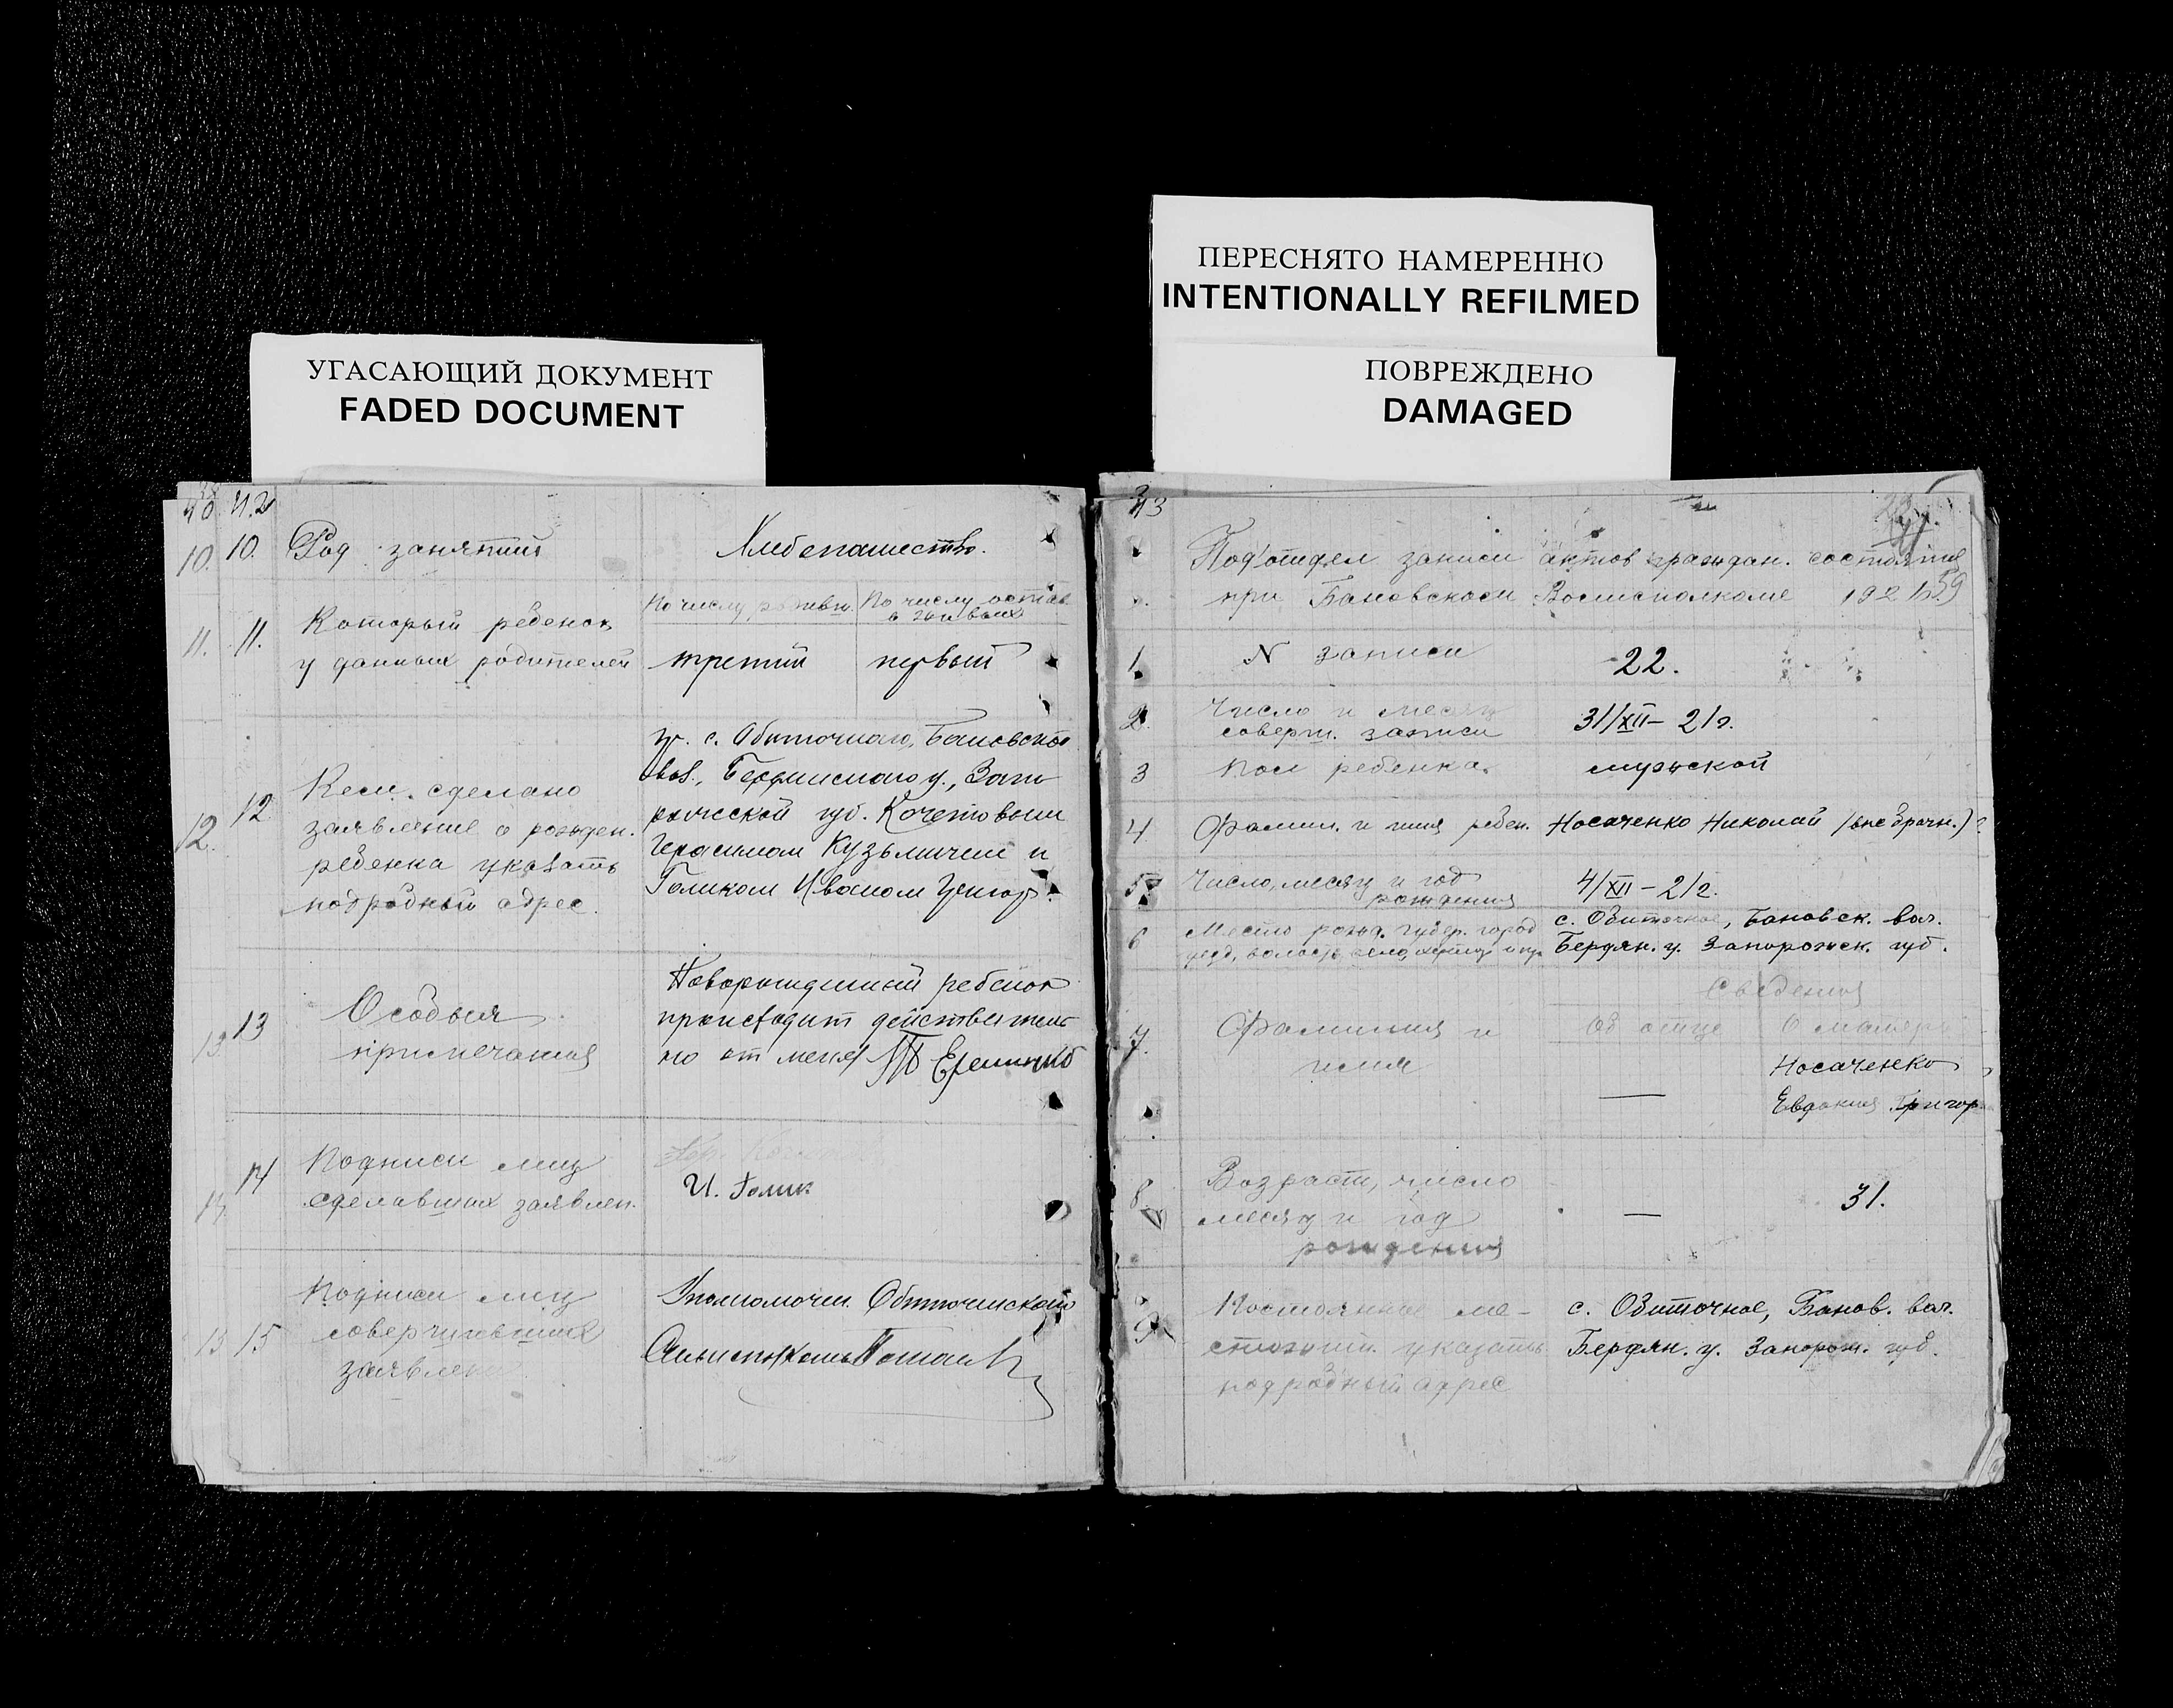 ПЕРЕСНЯТО НАМЕРЕННО
INTENTIONALLY REFILMED
УГАСАЮЩИЙ ДОКУМЕНТ
FADED DOCUMENT
ПОВРЕЖДЕНО
DAMAGED
40 42
10. 10. Род занятий Хлебопашество.
По числу По числу остав.
в живых
11. 11. Который ребенок
у данных родителей третий первый
гр. с. Обиточного, Бановской
вол., Бердянского у., Запо
рожской губ. Кочетовым
Герасимом Кузьмичем и
Голиком Иваном Григор.
12. 12 Кем сделано
заявление о рожден.
ребенка указать
подробный адрес.
Новорожденный ребенок
происходит действитель
но от меня Еременко
13 13 Особыя
примечания
14 14 Подписи лиц
сделавших заявлен.
И. Голик
13 15 Подписи лиц
совершивших
заявлен
Уполномочен. Обиточенского
43
Подотдел записи актов граждан. состояния
при Бановском Волисполкоме 1921 59
1. N записи 22.
2. Число и месяц
соверш. записи 31/XII – 21г.
3 Пол ребенка. мужской
4 Фамил. и имя ребен. Носаченко Николай (внебрачн.)
5 Число, месяц и год
рождения 4/XII – 21г.
6 Место рожд. губер. город
уезд, волость, село с. Обиточное, Бановск. вол.
Бердян. у. Запорожск. губ.
Сведения
Об отце О матери
7. Фамилия и
имя — Носаченко
Евдокия Григор
8. Возраст, число
месяц и год
рождения — 31.
9. Постоянное ме-
стожит. указать
подробный адрес
с. Обиточное, Банов. вол.
Бердян. у. Запорож. губ.